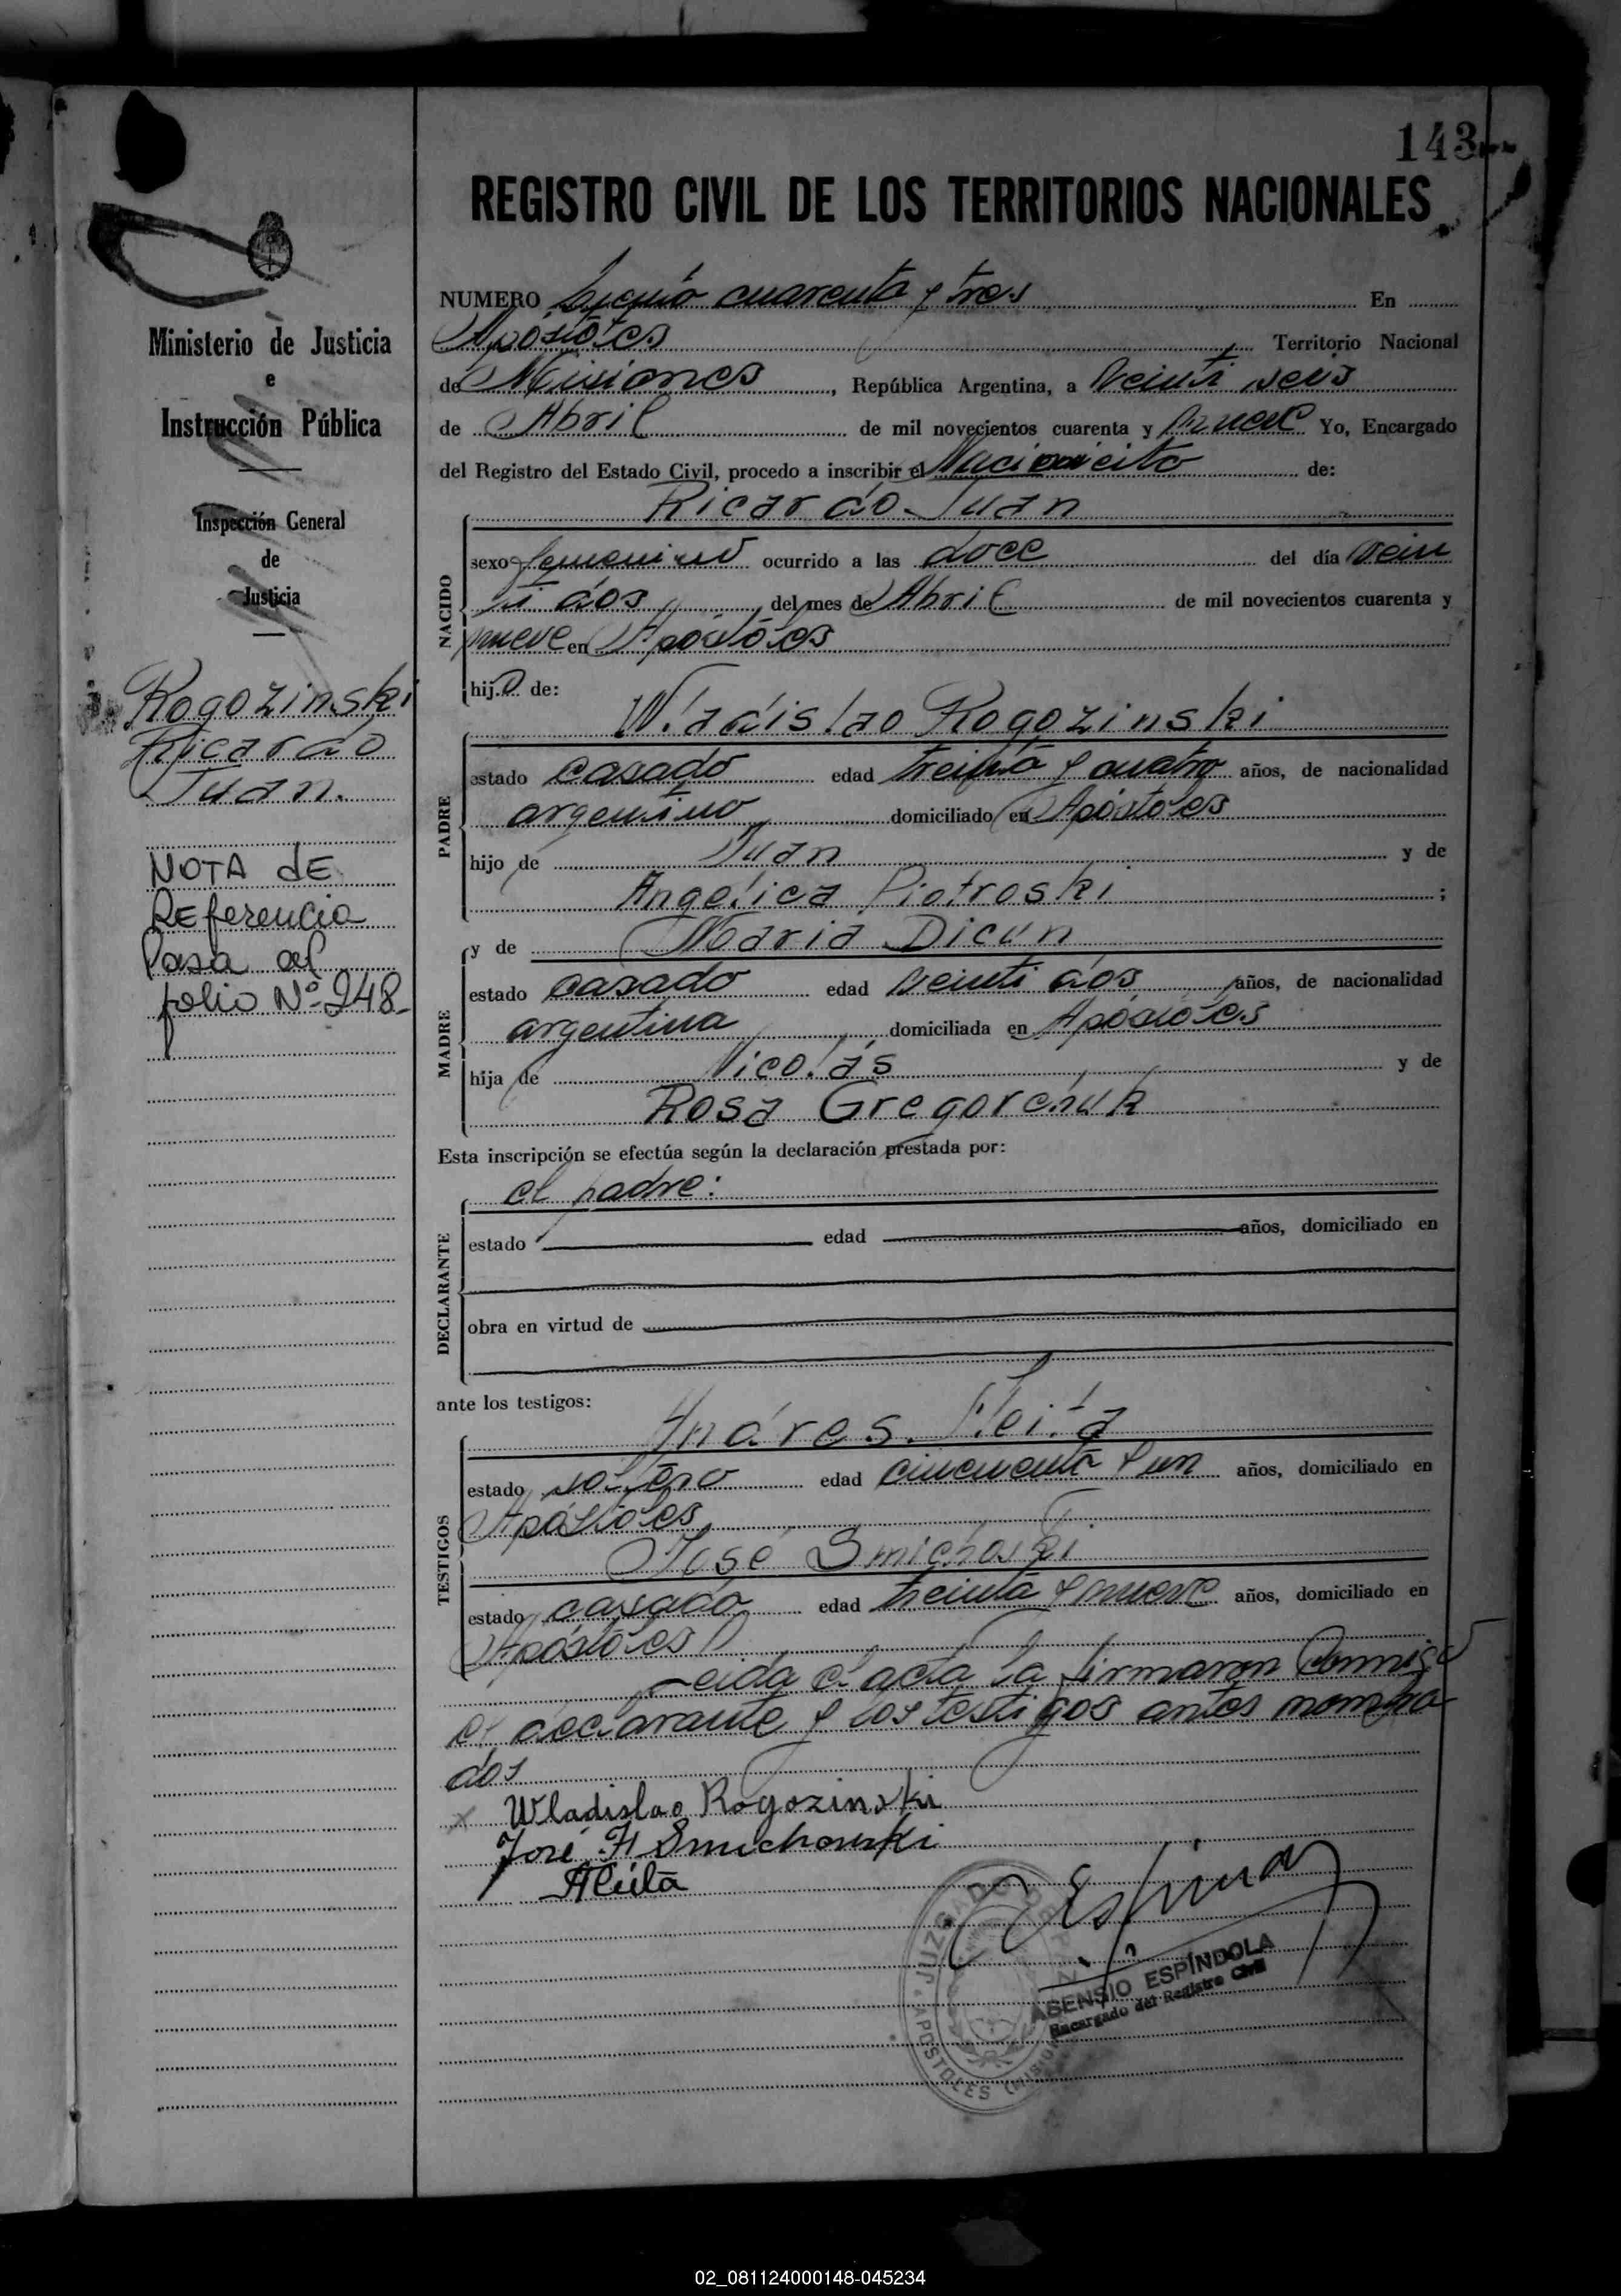 143
REGISTRO CIVIL DE LOS TERRITORIOS NACIONALES
Ministerio de Justicia
e
Instrucción Pública
Inspección General
de
Justicia
Rogozinski
Ricardo
Juan.
NOTA dE
REferencia
Pasa al
folio Nº 248
NUMERO cuarenta y tres En
Apóstoles Territorio Nacional
de Misiones, República Argentina, a Veinti seis
de Abril de mil novecientos cuarenta y nueve Yo, Encargado
del Registro del Estado Civil, procedo a inscribir el de:
Ricardo Juan
NACIDO
sexo femenino ocurrido a las doce del día Vein
ti dos del mes de Abril de mil novecientos cuarenta y
nueve en Apóstoles
hijo de:
Wladislao Rogozinski
PADRE
estado casado edad treinta y cuatro años, de nacionalidad
argentino domiciliado en Apóstoles
hijo de Juan y de
Angélica Piotroski ;
y de Maria Dicun
MADRE
estado casado edad Veinti dos años, de nacionalidad
argentina domiciliada en Apóstoles
hija de Nicolás y de
Rosa Gregorchuk
Esta inscripción se efectúa según la declaración prestada por:
el padre:
DECLARANTE
estado edad años, domiciliado en
obra en virtud de
ante los testigos:
Andres Fleita
TESTIGOS
estado soltero edad cincuenta y un años, domiciliado en
Apóstoles
José Smichoski
estado casado edad treinta y nueve años, domiciliado en
Apóstoles
Leida el acta la firmaron Conmigo
el declarante y los testigos antes nombra
dos
x Wladislao Rogozinski
José H Smichowski
AFleita
JUZGADO DE PAZ
APOSTOLES (MISIONES)
ASENSIO ESPÍNDOLA
Encargado del Registro Civil
02_081124000148-045234